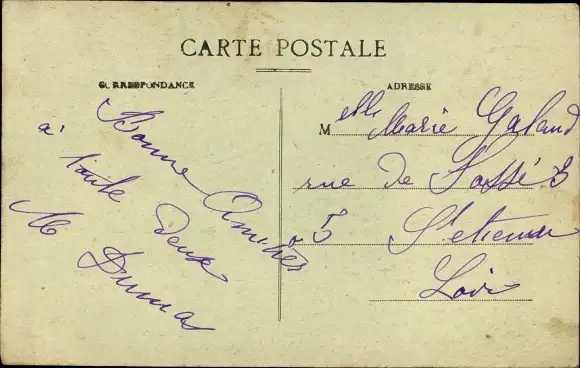 CARTE POSTALE
CORRESPONDANCE
ADRESSE
Bonne Amitiés
à toute deux
M Dumas
Mlle Marie Galand
rue De
5 St etienne
Loire